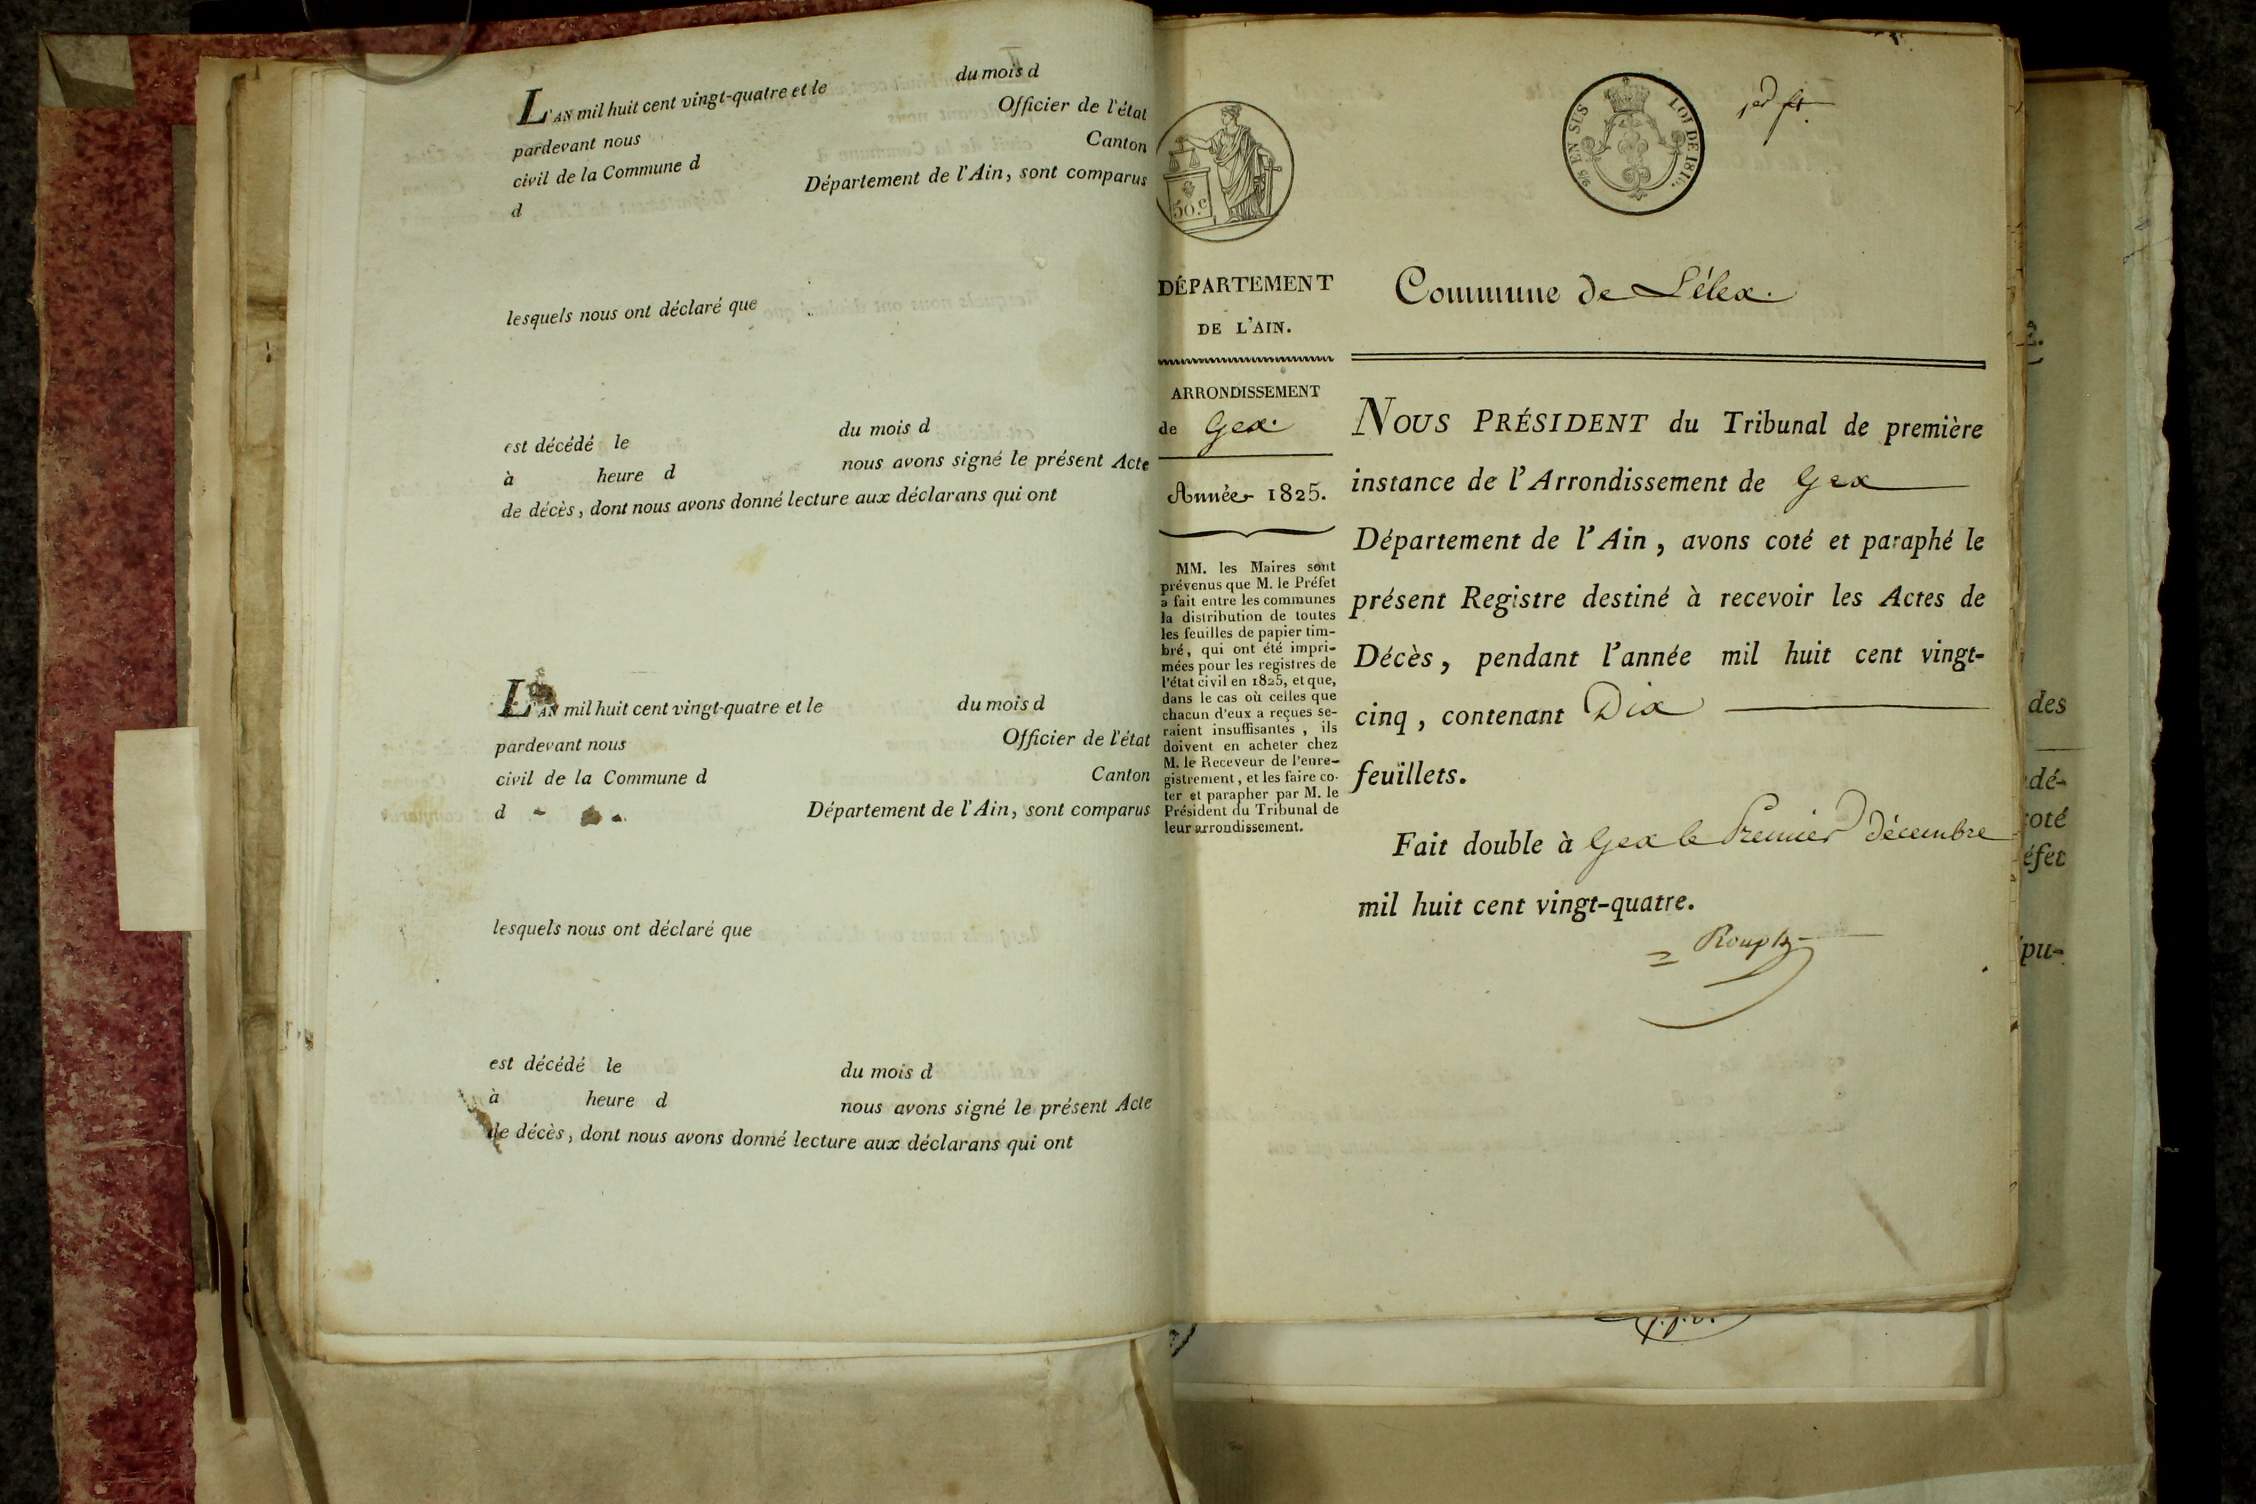 L'AN mil huit cent vingt-quatre et le du mois d
pardevant nous Officier de l'état
civil de la Commune d Canton
d Département de l'Ain, sont comparus
lesquels nous ont déclaré que
est décédé le du mois d
à heure d nous avons signé le présent Acte
de décès, dont nous avons donné lecture aux déclarans qui ont
L'AN mil huit cent vingt-quatre et le du mois d
pardevant nous Officier de l'état
civil de la Commune d Canton
d Département de l'Ain, sont comparus
lesquels nous ont déclaré que
est décédé le du mois d
à heure d nous avons signé le présent Acte
de décès, dont nous avons donné lecture aux déclarans qui ont
50.c
EN SUS LOI DE 1816.
DÉPARTEMENT
DE L'AIN.
ARRONDISSEMENT
de Gex.
Année 1825.
MM. les Maires sont
prévenus que M. le Préfet
a fait entre les communes
la distribution de toutes
les feuilles de papier tim-
bré, qui ont été impri-
mées pour les registres de
l'état civil en 1825, et que,
dans le cas où celles que
chacun d'eux a reçues se-
raient insuffisantes, ils
doivent en acheter chez
M. le Receveur de l'enre-
gistrement, et les faire co-
ter et parapher par M. le
Président du Tribunal de
leur arrondissement.
Commune de Lélex.
NOUS PRÉSIDENT du Tribunal de première
instance de l'Arrondissement de Gex
Département de l'Ain, avons coté et paraphé le
présent Registre destiné à recevoir les Actes de
Décès, pendant l'année mil huit cent vingt-
cinq, contenant Dix
feuillets.
Fait double à Gex le Premier Décembre
mil huit cent vingt-quatre.
des
dé-
coté
éfet
pu-